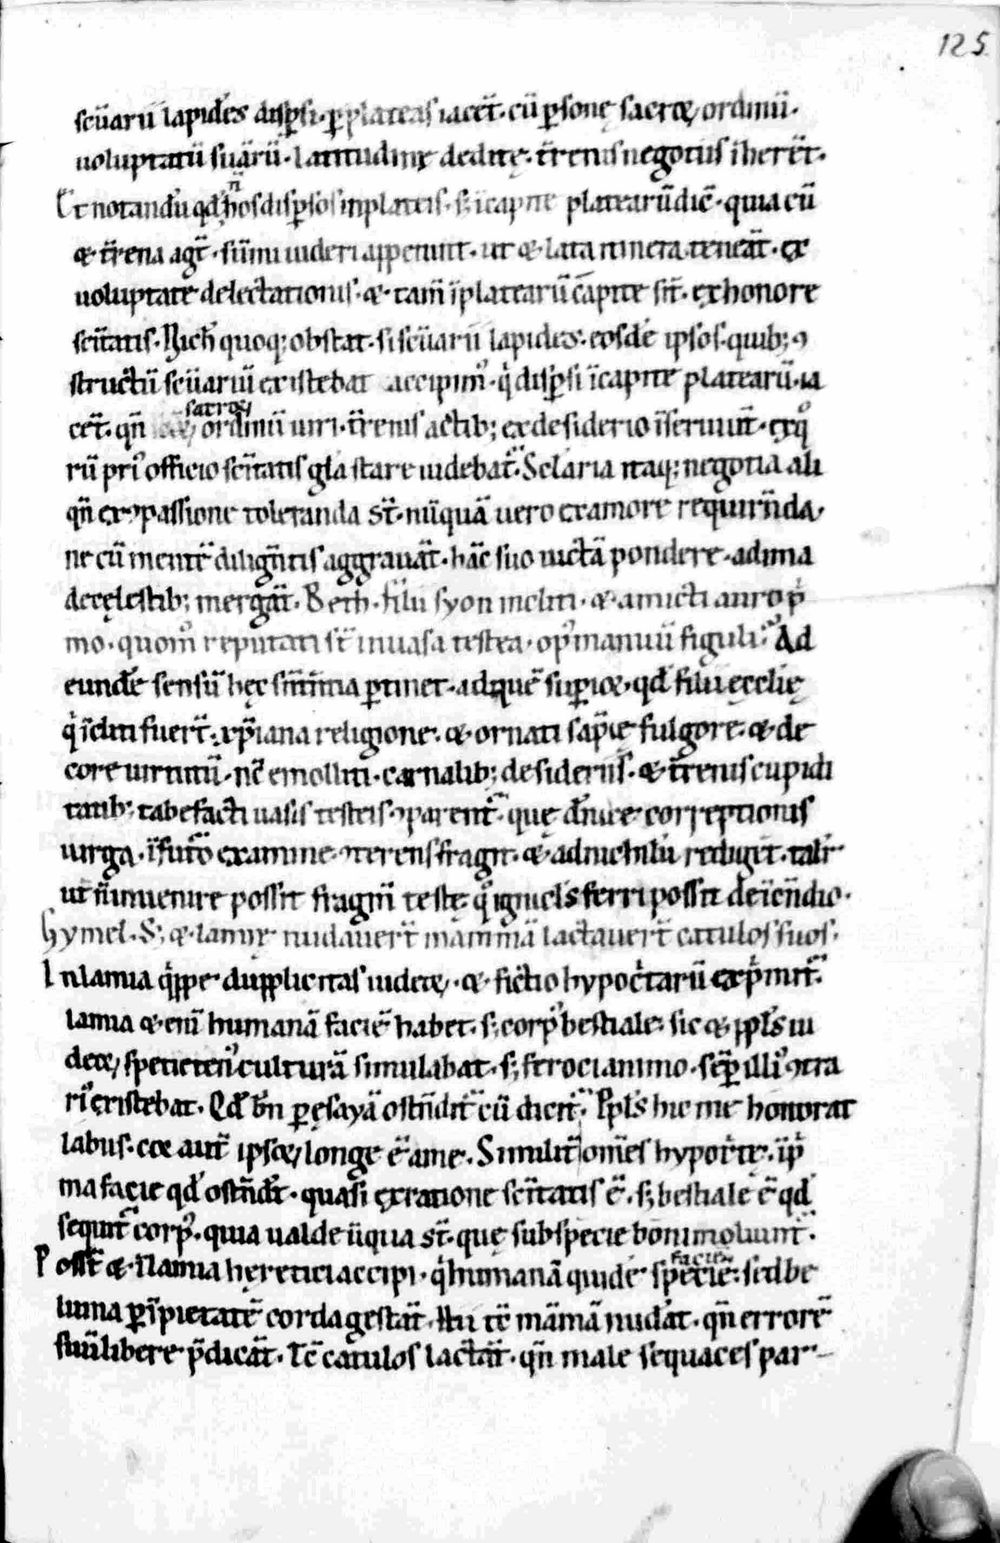 125.
scuarii lapides disp̄si· p̱ plateas iacēt· cū p̱sonę sacroꝝ ordinū·
uoluptatū suarū· latitudini deditę· t̄renis negotiis īherēt·
Et notandū qd̄ n̄ hos disp̱sos in plateis· s; ī capite platearū dic̄· quia cū
& t̄rena agt̄· sūmi uideri appetunt· ut & lata itinera teneāt· ex
uoluptate delectationis· & tam̄ ī platearū capite st̄· ex honore
sc̄itatis· Nich̄ quoq; obstat· si scūarii lapides· eosdē ipsos· quib; ꝯ
structū scūariū existebat accipim᷒· q̇ disp̱si ī capite platearū· ia
cēt· qn̄ sacroꝝ ordinū uiri· t̄renis actib; ex desiderio īseruiūt· ex q̊
rū pri᷒ officio sc̄itatis gl̄a stare uidebat᷑· Sc̄laria itaq; negotia ali
qn̄ ex ꝯpassione toleranda st̄· nūquā uero ex amore requirn̄da·
ne cū mentē dilign̄tis aggrauāt· hāc suo uictā pondere· ad ima
de cęlestib; mergāt· Beth· filii syon incliti· & amicti auro ṗ
mo· quom̊ reputati st̄ in uasa testea· op᷒ manuū figuli· Ad
eundē sensū hęc sn̄tn̄tia p̱tinet· ad quē sup̱ioꝝ· qd̄ filii ęcclię
q̇ īcliti fuert̄· xp̄iana religione· & ornati sap̄ię fulgore· & de
core uirtutū· nc̄ emolliti· carnalib; desideriis· & t̄renis cupidi
tatib; tabefacti uasis testeis ꝯparent᷑· que dn̄ice correptionis
uirga· ī futo examine ꝯterens fragit· & ad nichilū redigit· talit᷑
ut n̄ inuenire possit fragm̄ testę q̊ ignicl̄s ferri possit de īcn̄dio·
Gymel· S; & lamię nudauert̄ mammā lactauert̄ catulos suos·
In lamia q̇ppe dupplicitas iudeꝝ· & fictio hypoc̄tarū exṗmit᷑·
lamia & enī humanā faciē habet· s; corp᷒ bestiale· sic & ppl̄s iu
deoꝝ specieten᷒ culturā simulabat· s; feroci animo· sēp̱ illi᷒ ꝯtra
ri᷒ existebat· Qd̄ bn̄ p̱ esayā ostn̄dit᷑ cū dicit᷑· Ppl̄s hic me honorat
labiis· cor aut̄ ipsoꝝ longe ē a me· Similit᷑ oms̄ hypoc̄te· ī ṗ
ma facie qd̄ ostn̄dt̄· quasi ex ratione sc̄itatis ē· s; bestiale ē qd̄
sequit᷑ corp᷒· quia ualde īiqua st̄· que sub specie boni moliunt᷑·
Post̄ & Namia hęretici accipi· q̇ humanā quidē faciē spetiē· sed be
luina p̱ īpietatē corda gestāt· Hii tc̄ māmā nudāt· qn̄ errorē
suū libere p̄dicāt· Tc̄ catulos lactāt· qn̄ male sequaces par-